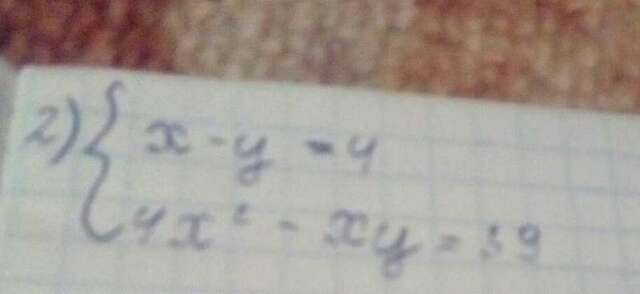 2) { x - y = 4
4x² - xy = 39